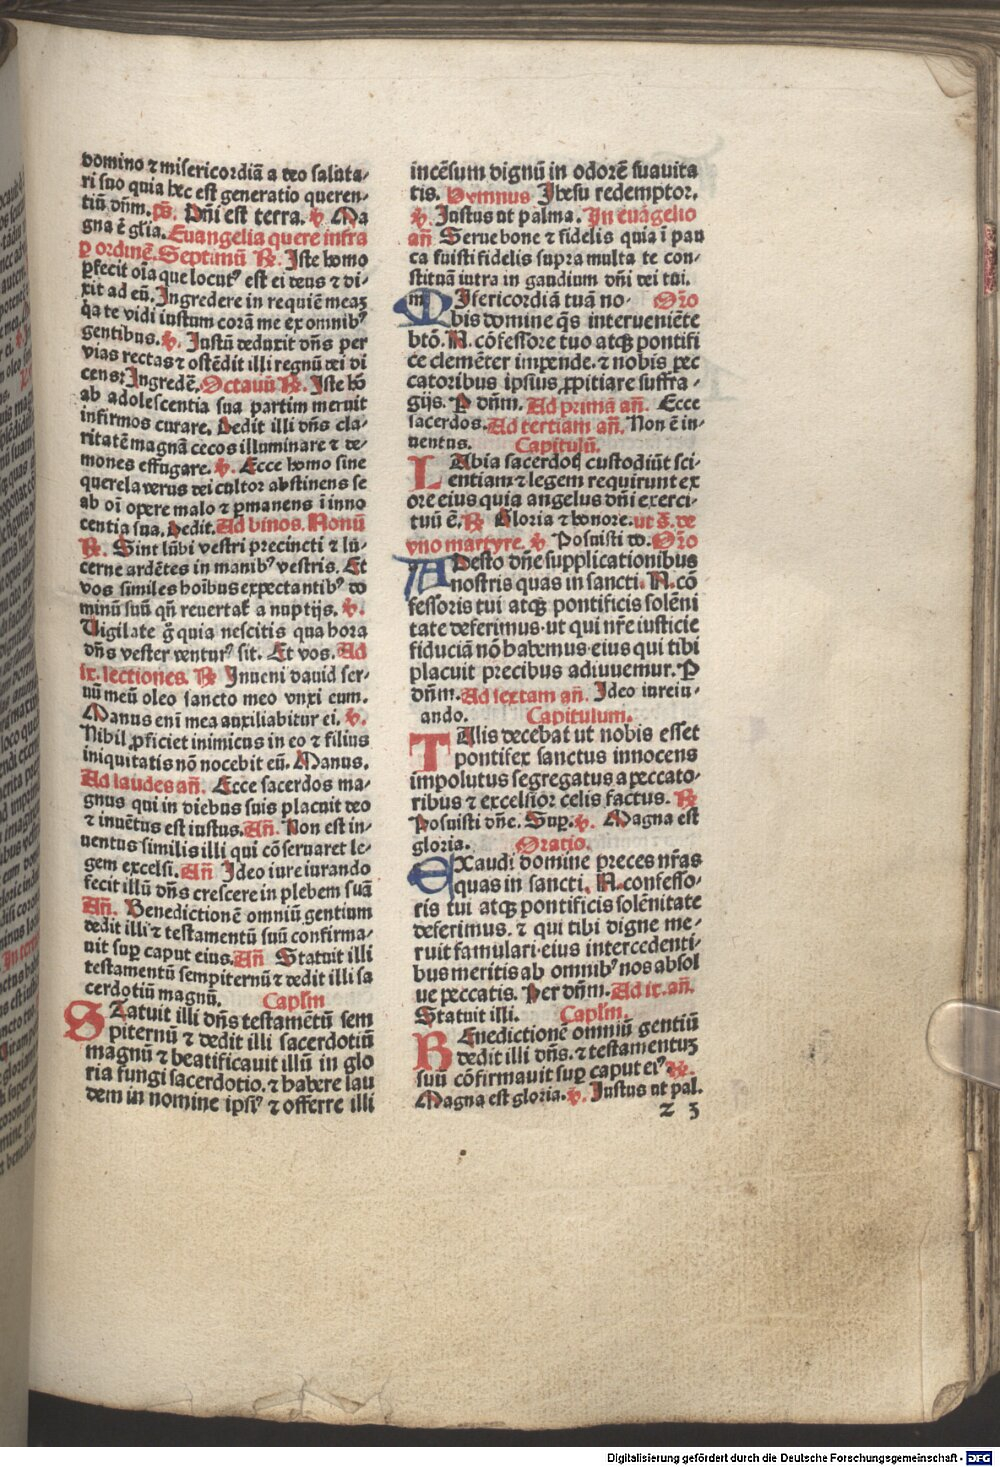 domino ⁊ misericordiā a deo saluta-
ri suo quia hec est generatio queren-
tiū dn̄m. ps̄. Dn̄i est terra. ꝟ. Ma
gna ē gl̄ia. Euangelia quere infra
ꝑ ordinē. Septimū ℞. Iste homo
ꝑfecit oīa que locutꝰ est ei deus ⁊ di-
xit ad eū. Ingredere in requiē meaꝫ
q̄a te vidi iustum corā me ex omnibꝰ
gentibus. ꝟ. Iustū deduxit dn̄s per
vias rectas ⁊ ostēdit illi regnū dei di
cens: Ingredē. Octauū ℞. Iste hō
ab adolescentia sua partim meruit
infirmos curare. Dedit illi dn̄s cla-
ritatē magnā cecos illuminare ⁊ de-
mones effugare. ꝟ. Ecce homo sine
querela verus dei cultor abstinens se
ab oī opere malo ⁊ ꝑmanens ī inno
centia sua. Dedit. Ad binos. Nonū
℞. Sint lūbi vestri precincti ⁊ lu-
cerne ardētes in manibꝰ vestris. Et
vos similes hoībus expectantibꝰ do
minū suū qn̄ reuertat̄ a nuptijs. ꝟ.
Vigilate g̊ quia nescitis qua hora
dn̄s vester venturꝰ sit. Et vos. Ad
ix. lectiones. ℞ Inueni dauid ser-
uū meū oleo sancto meo vnxi eum.
Manus enī mea auxiliabitur ei. ꝟ.
Nibil ꝓficiet inimicus in eo ⁊ filius
iniquitatis nō nocebit eū. Manus.
Ad laudes an̄. Ecce sacerdos ma-
gnus qui in diebus suis placuit deo
⁊ inuētus est iustus. An̄. Non est in-
uentus similis illi qui cōseruaret le-
gem excelsi. An̄ Ideo iure iurando
fecit illū dn̄s crescere in plebem suā
An̄. Benedictionē omniū gentium
dedit illi ⁊ testamentū suū confirma-
uit sup̄ caput eius. An̄ Statuit illi
testamentū sempiternū ⁊ dedit illi sa
cerdotiū magnū. Capl̄m
STatuit illi dn̄s testamētū sem
piternū ⁊ dedit illi sacerdotiū
magnū ⁊ beatificauit illū in glo
ria fungi sacerdotio. ⁊ habere lau
dem in nomine ipsiꝰ ⁊ offerre illi
incēsum dignū in odorē suauita
tis. Hymnus Jhesu redemptor.
ꝟ. Iustus ut palma. In euāgelio
an̄ Serue bone ⁊ fidelis quia ī pau
ca fuisti fidelis supra multa te con-
stituā intra in gaudium dn̄i dei tui.
MIsericordiā tuā no- Or̄o
bis domine q̄s interueniēte
btō. N. cōfessore tuo atqꝫ pontifi
ce clemēter impende. ⁊ nobis pec
catoribus ipsius ꝓpitiare suffra-
gijs. P dn̄m. Ad primā an̄. Ecce
sacerdos. Ad tertiam an̄. Non ē in-
uentus. Capitulū.
LAbia sacerdoꝭ custodiūt sci-
entiam ⁊ legem requirunt ex
ore eius quia angelus dn̄i exerci-
tuū ē. ℞ Gloria ⁊ honore. ut s̄. de
vno martyre. ꝟ Posuisti do. Or̄o
ADesto dn̄e supplicationibus
nostris quas in sancti. N. cō
fessoris tui atqꝫ pontificis solēni
tate deferimus. ut qui nr̄e iusticie
fiduciā nō habemus. eius qui tibi
placuit precibus adiuuemur. P
dn̄m. Ad sextam an̄. Ideo iureiu-
ando. Capitulum.
TAlis decebat ut nobis esset
pontifex sanctus innocens
impolutus segregatus a peccato-
ribus ⁊ excelsior celis factus. ℞
Posuisti dn̄e. Sup̄. ꝟ. Magna est
gloria. Oratio.
EXaudi domine preces nr̄as
quas in sancti. N. confesso-
ris tui atqꝫ pontificis solēnitate
deferimus. ⁊ qui tibi digne me-
ruit famulari. eius intercedenti-
bus meritis ab omnibꝰ nos absol
ue peccatis. Per dn̄m. Ad ix. an̄.
Statuit illi. Capl̄m.
BEnedictionē omniū gentiū
dedit illi dn̄s. ⁊ testamentuꝫ
suū cōfirmauit sup̄ caput eiꝰ ℞.
Magna est gloria. ꝟ. Iustus ut pal.
z 3
Digitalisierung gefördert durch die Deutsche Forschungsgemeinschaft - DFG